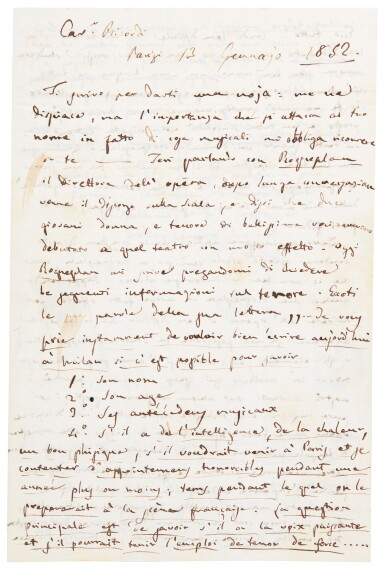 Car.º Ricordi
Parigi 13 Gennajo 1852.
Ti scrivo per darti una noja: me ne
dispiace, ma l'importanza che si attacca al tuo
nome in fatto di cose musicali mi obbliga ricorrere
a te —— Ieri parlando con Roqueplan
il direttore dell' opera, dopo lunga conversazione
venne il discorso sulla Scala, e dissi che due
giovani donna, e tenore di bellissima voce
debutato a quel teatro con molto effetto. Oggi
Roqueplan mi scrive pregandomi di chiedere
le seguenti informazioni sul tenore. Eccoti
le parole della sua lettera „ de vous
prie instamment de vouloir bien écrire aujourd'hui
à Milan si c'est possible pour savoir
1.º Son nom
2.º Son age
3.º Ses antécédens musicaux
4.º S'il a de l'intelligence, de la chaleur,
un bon physique, s'il voudrait venir à Paris et se
contenter d'appointemens honorables pendant une
année plus ou moins, tems pendant le quel on le
preparerait à la scène française. La question
principale est de savoir s'il a la voix puissante
et s'il pourrait tenir l'emploi de tenor de force.....